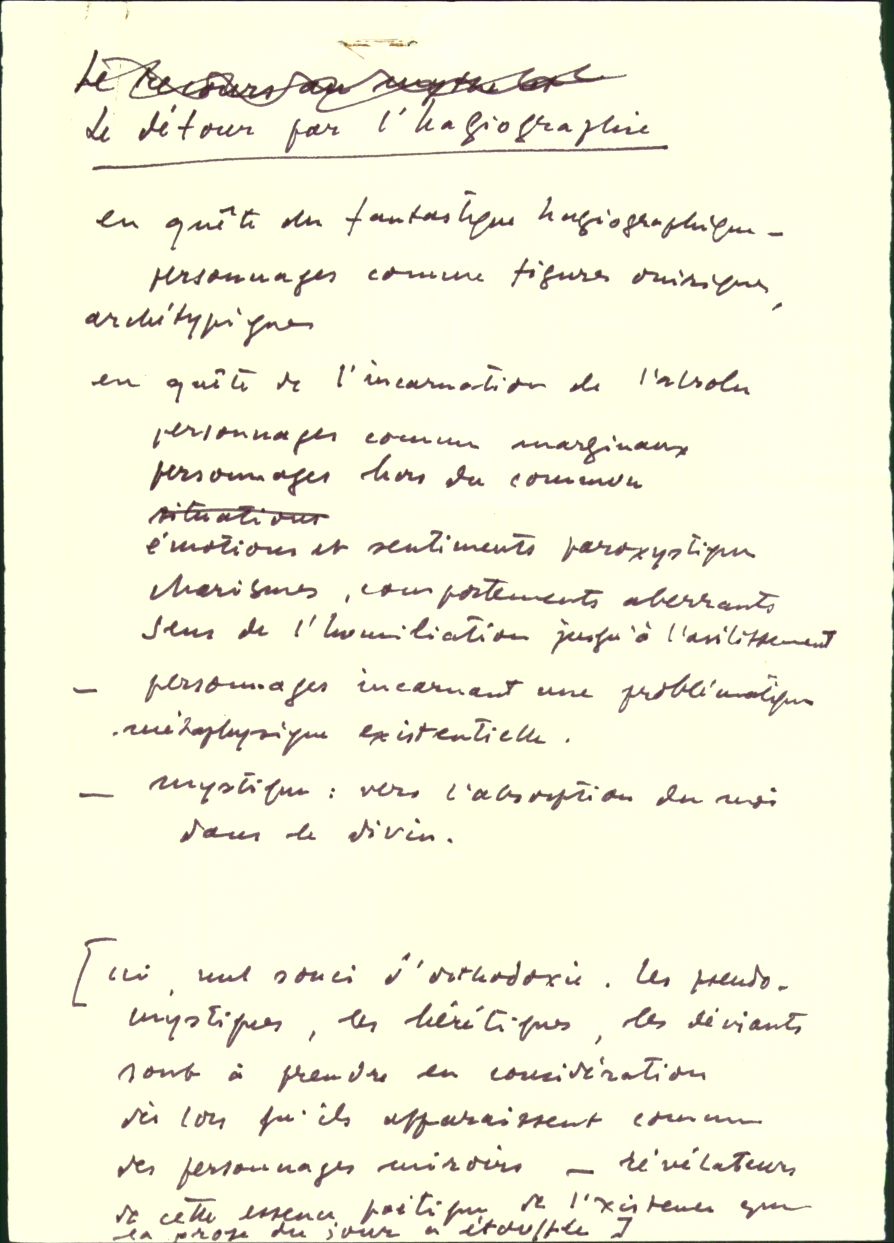 Le recours au mythe et
Le détour par l'hagiographie
en quête du fantastique hagiographique –
personnages comme figures oniriques,
archétypiques
en quête de l'incarnation de l'absolu
personnages comme marginaux
personnages hors du commun
situations
émotions et sentiments paroxystiques
charismes, comportements aberrants
sens de l'humiliation jusqu'à l'avilissement
– personnages incarnant une problématique
métaphysique existentielle.
– mystique : vers l'absorption du moi
dans le divin.
[ici, nul souci d'orthodoxie. Les pseudo-
mystiques, les hérétiques, les déviants
sont à prendre en considération
dès lors qu'ils apparaissent comme
des personnages miroirs – révélateurs
de cette essence poétique de l'existence que
la prose du jour a étouffée]